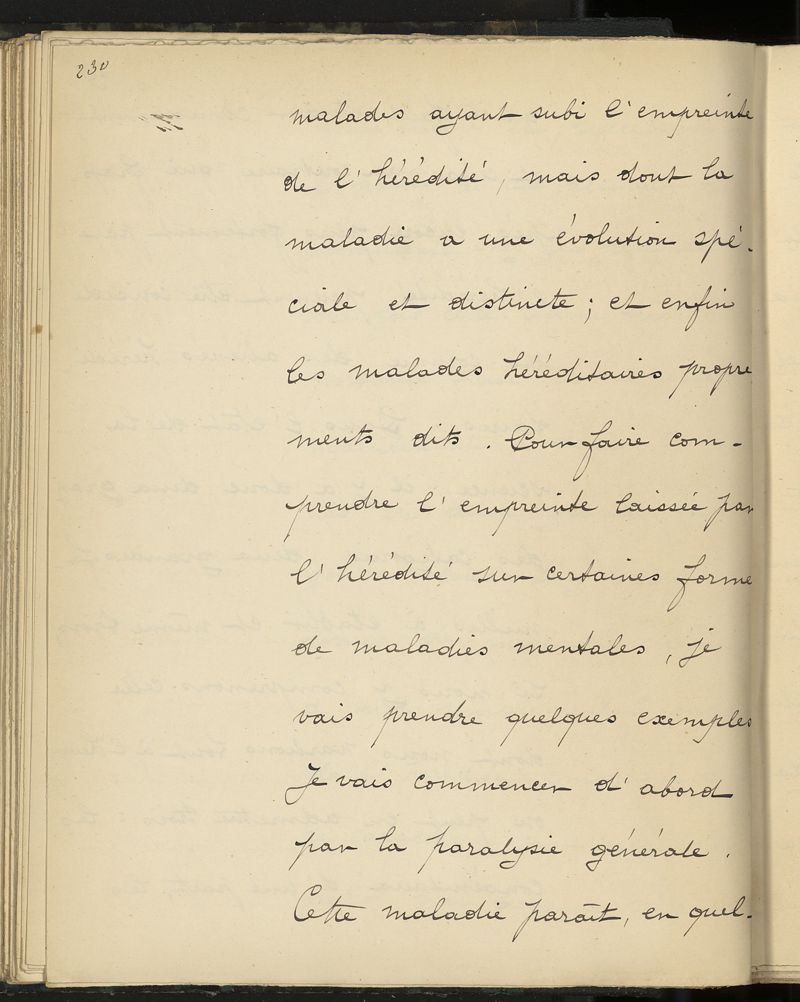 230
malades ayant subi l'empreinte
de l'hérédité, mais dont la
maladie a une évolution spé-
ciale et distincte ; et enfin
les malades héréditaires propre
ments dits. Pour faire com-
prendre l'empreinte laissée par
l'hérédité sur certaines forme
de maladies mentales, je
vais prendre quelques exemples
Je vais commencer d'abord
par la paralysie générale.
Cette maladie paraît, en quel-